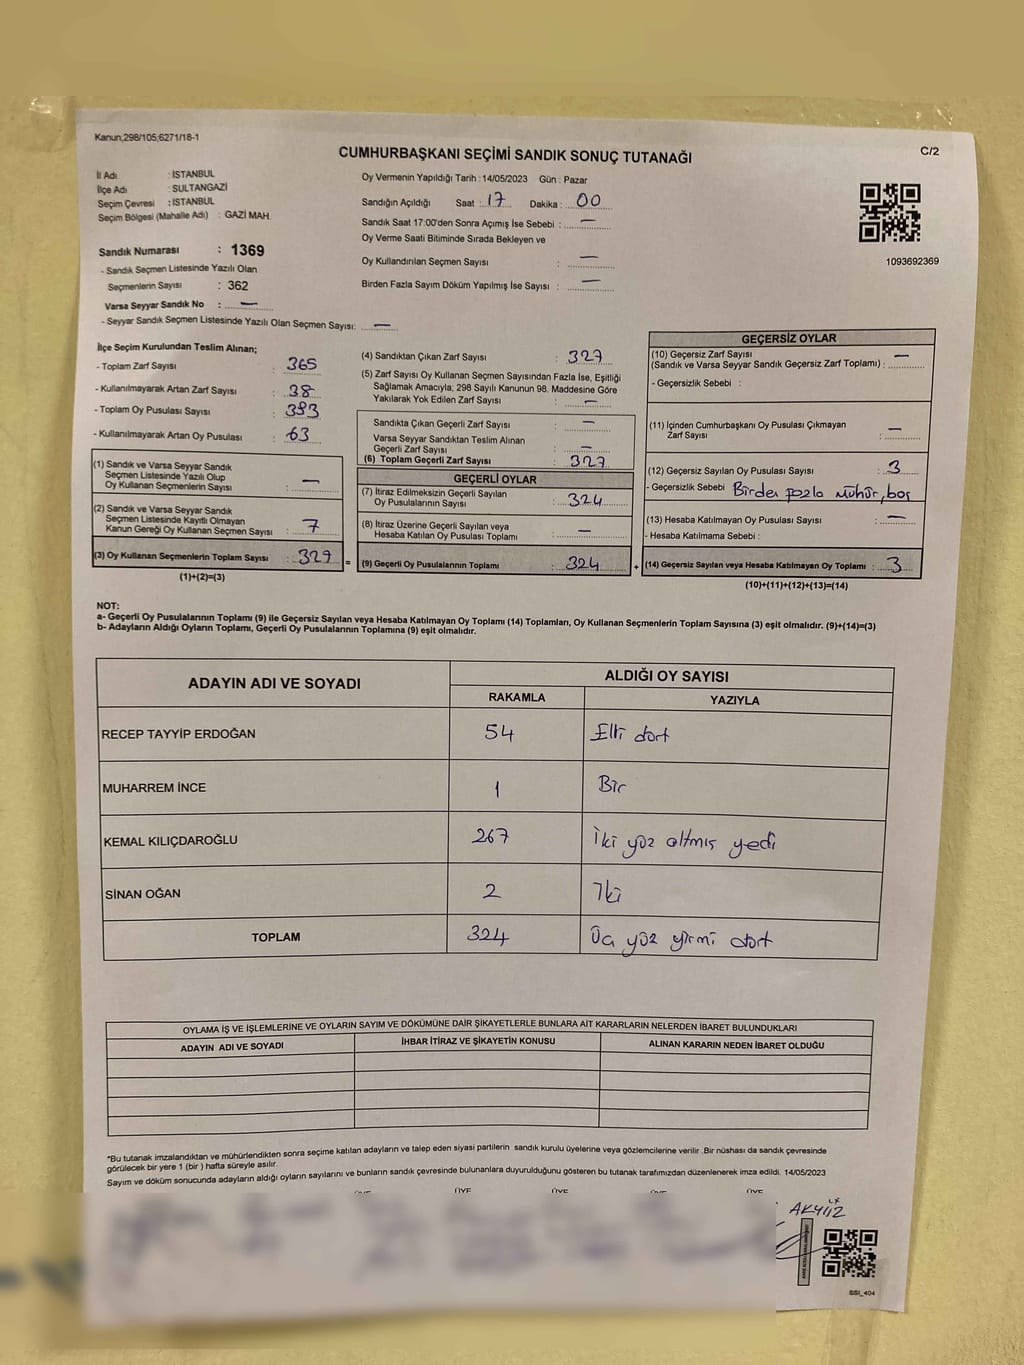 Kanun,298/105,6271/18-1
C/2
CUMHURBAŞKANI SEÇİMİ SANDIK SONUÇ TUTANAĞI
İl Adı : İSTANBUL
İlçe Adı : SULTANGAZİ
Seçim Çevresi : İSTANBUL
Seçim Bölgesi (Mahalle Adı) : GAZİ MAH.
Sandık Numarası : 1369
- Sandık Seçmen Listesinde Yazılı Olan
Seçmenlerin Sayısı : 362
Varsa Seyyar Sandık No : —
- Seyyar Sandık Seçmen Listesinde Yazılı Olan Seçmen Sayısı: —
Oy Vermenin Yapıldığı Tarih : 14/05/2023 Gün : Pazar
Sandığın Açıldığı Saat : 17 Dakika : 00
Sandık Saat 17:00'den Sonra Açımış İse Sebebi : —
Oy Verme Saati Bitiminde Sırada Bekleyen ve
Oy Kullandırılan Seçmen Sayısı : —
Birden Fazla Sayım Döküm Yapılmış İse Sayısı : —
1093692369
İlçe Seçim Kurulundan Teslim Alınan;
- Toplam Zarf Sayısı : 365
- Kullanılmayarak Artan Zarf Sayısı : 38
- Toplam Oy Pusulası Sayısı : 393
- Kullanılmayarak Artan Oy Pusulası : 63
(1) Sandık ve Varsa Seyyar Sandık
Seçmen Listesinde Yazılı Olup
Oy Kullanan Seçmenlerin Sayısı : —
(2) Sandık ve Varsa Seyyar Sandık
Seçmen Listesinde Kayıtlı Olmayan
Kanun Gereği Oy Kullanan Seçmen Sayısı : 7
(3) Oy Kullanan Seçmenlerin Toplam Sayısı : 327 =
(1)+(2)=(3)
(4) Sandıktan Çıkan Zarf Sayısı : 327
(5) Zarf Sayısı Oy Kullanan Seçmen Sayısından Fazla İse, Eşitliği
Sağlamak Amacıyla; 298 Sayılı Kanunun 98. Maddesine Göre
Yakılarak Yok Edilen Zarf Sayısı : —
Sandıkta Çıkan Geçerli Zarf Sayısı : —
Varsa Seyyar Sandıktan Teslim Alınan
Geçerli Zarf Sayısı : —
(6) Toplam Geçerli Zarf Sayısı : 327
GEÇERLİ OYLAR
(7) İtiraz Edilmeksizin Geçerli Sayılan
Oy Pusulalarının Sayısı : 324
(8) İtiraz Üzerine Geçerli Sayılan veya
Hesaba Katılan Oy Pusulası Toplamı : —
(9) Geçerli Oy Pusulalarının Toplamı : 324 +
GEÇERSİZ OYLAR
(10) Geçersiz Zarf Sayısı
(Sandık ve Varsa Seyyar Sandık Geçersiz Zarf Toplamı) : —
- Geçersizlik Sebebi :
(11) İçinden Cumhurbaşkanı Oy Pusulası Çıkmayan
Zarf Sayısı : —
(12) Geçersiz Sayılan Oy Pusulası Sayısı : 3
- Geçersizlik Sebebi Birden fazla Mühür, boş
(13) Hesaba Katılmayan Oy Pusulası Sayısı : —
- Hesaba Katılmama Sebebi :
(14) Geçersiz Sayılan veya Hesaba Katılmayan Oy Toplamı : 3
(10)+(11)+(12)+(13)=(14)
NOT:
a- Geçerli Oy Pusulalarının Toplamı (9) ile Geçersiz Sayılan veya Hesaba Katılmayan Oy Toplamı (14) Toplamları, Oy Kullanan Seçmenlerin Toplam Sayısına (3) eşit olmalıdır. (9)+(14)=(3)
b- Adayların Aldığı Oyların Toplamı, Geçerli Oy Pusulalarının Toplamına (9) eşit olmalıdır.
ADAYIN ADI VE SOYADI ALDIĞI OY SAYISI
RAKAMLA YAZIYLA
RECEP TAYYİP ERDOĞAN 54 Elli dört
MUHARREM İNCE 1 Bir
KEMAL KILIÇDAROĞLU 267 İki yüz altmış yedi
SİNAN OĞAN 2 İki
TOPLAM 324 Üç yüz yirmi dört
OYLAMA İŞ VE İŞLEMLERİNE VE OYLARIN SAYIM VE DÖKÜMÜNE DAİR ŞİKAYETLERLE BUNLARA AİT KARARLARIN NELERDEN İBARET BULUNDUKLARI
ADAYIN ADI VE SOYADI İHBAR İTİRAZ VE ŞİKAYETİN KONUSU ALINAN KARARIN NEDEN İBARET OLDUĞU
*Bu tutanak imzalandıktan ve mühürlendikten sonra seçime katılan adayların ve talep eden siyasi partilerin sandık kurulu üyelerine veya gözlemcilerine verilir .Bir nüshası da sandık çevresinde
görülecek bir yere 1 (bir ) hafta süreyle asılır.
Sayım ve döküm sonucunda adayların aldığı oyların sayılarını ve bunların sandık çevresinde bulunanlara duyurulduğunu gösteren bu tutanak tarafımızdan düzenlenerek imza edildi. 14/05/2023
ÜYE ÜYE ÜYE ÜYE
SSI_404